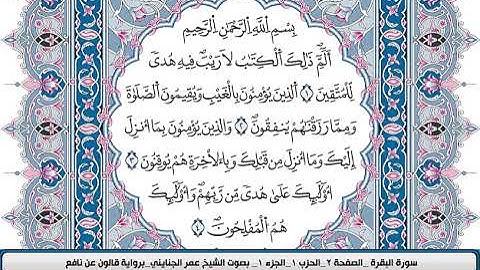 بِسْمِ اللَّهِ الرَّحْمَٰنِ الرَّحِيمِ
أَلَٓمِّٓ ذَٰلِكَ اَ۬لْكِتَٰبُ لَا رَيْبَۖ فِيهِ هُدىٗ
لِّلْمُتَّقِينَ ١ اَ۬لذِينَ يُؤْمِنُونَ بِالْغَيْبِ وَيُقِيمُونَ اَ۬لصَّلَوٰةَ
وَمِمَّا رَزَقْنَٰهُمْ يُنفِقُونَۖ ٢ وَالذِينَ يُؤْمِنُونَ بِمَا أُنزِلَ
إِلَيْكَ وَمَا أُنزِلَ مِن قَبْلِكَ وَبِالَاخِرَةِ هُمْ يُوقِنُونَۖ ٣
أُوْلَٰٓئِكَ عَلَىٰ هُدىٗ مِّن رَّبِّهِمْۖ وَأُوْلَٰٓئِكَ
هُمُ اُ۬لْمُفْلِحُونَۖ ٤
سورة البقرة _الصفحة ٢_الحزب ١_الجزء ١_ بصوت الشيخ عمر الجنايني_برواية قالون عن نافع